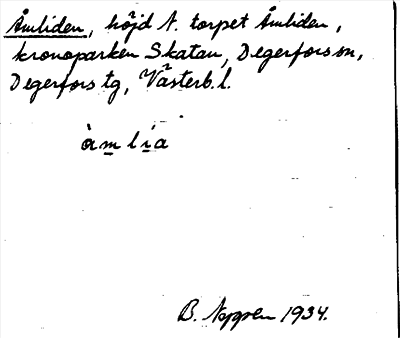 Åmliden, höjd N. torpet Åmliden,
kronoparken Skatan, Degerfors sn,
Degerfors tg, Västerb. l.
àmlia
B. Nygren 1934.